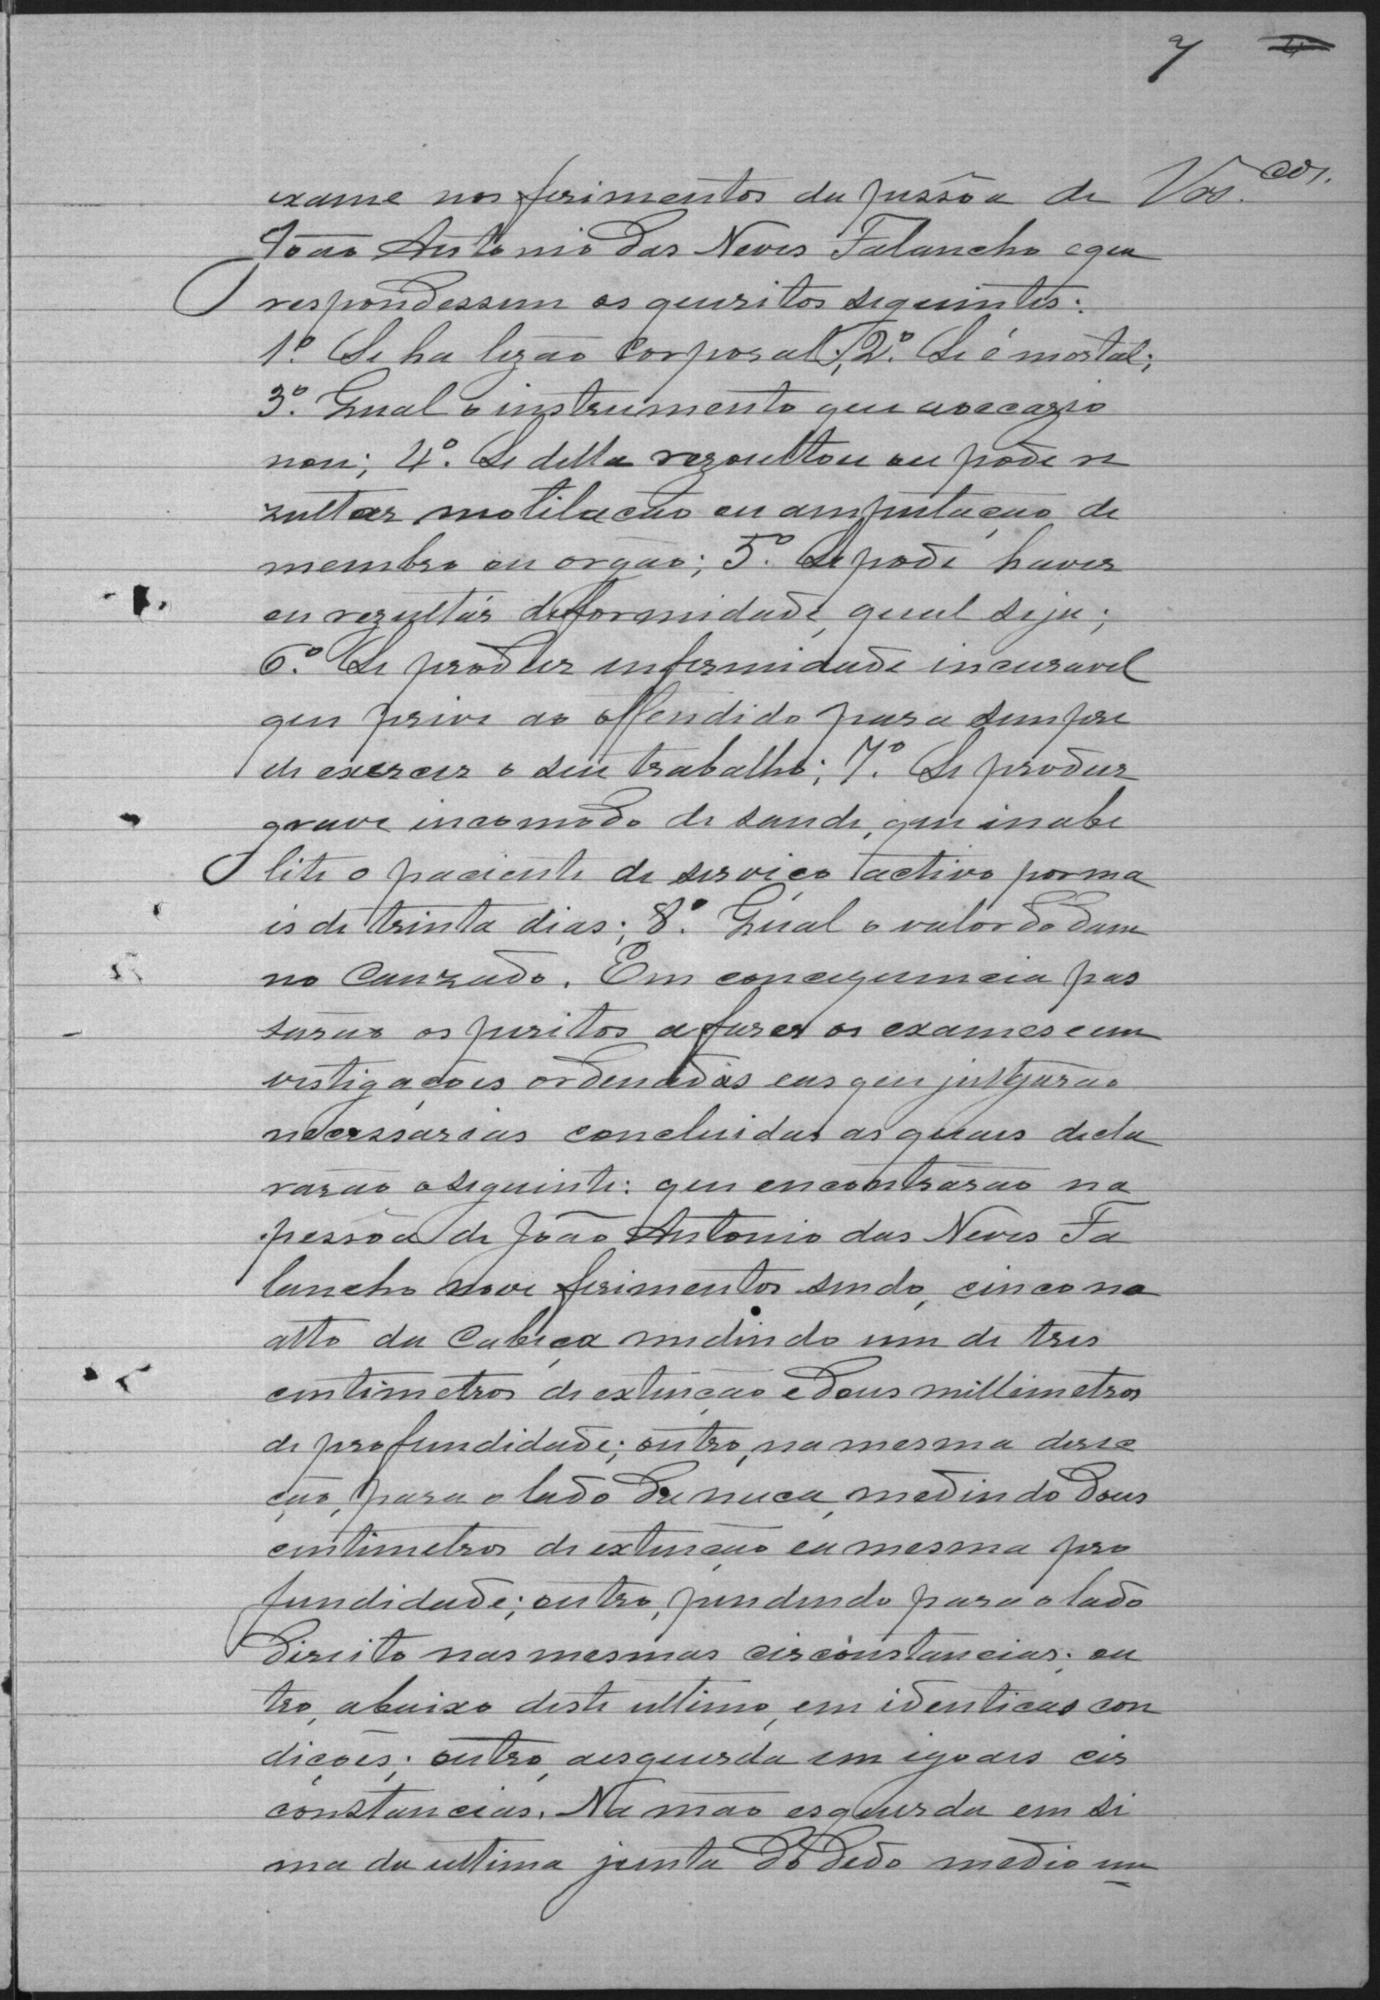 7
exame nos ferimentos da pessôa de
João Antonio das Neves Falancho e que
respondessem os queuritos seguintes:
1º. Se ha lezão corporal; 2º. Se é mortal;
3º. Qual o instrumento que a occazio
nou; 4º. Se della rezoultou ou pode re
zultar motilacão ou amputação de
membro ou orgão; 5º. Se pode haver
ou rezultár deformidade, qual seja;
6º. Se produz enfermidade incuravel
que prive ao offendido para sempre
de exercer o seu trabalho; 7º. Se produz
grave incomodo de saude, que inabe
lite o paciente de serviço activo por ma
is de trinta dias; 8º. Qual o valor do dam
no cauzado. Em concequencia pas
sarão os peritos a fazer os exames e inn
vestigações ordenadas e as que julgarão
necerssarias concluidas as quaes decla
rarão o seguinte: que encontrarão na
pessôa de João Antonio das Neves Fa
lancho nove ferimentos sendo, cinco no
alto da Cabeça medindo um de tres
centimetros de extenção e dous millimetros
de profundidade; outro, na mesma derse
ção, para o lado da nuca, medindo dous
centimetros de extenção e a mesma pro
fundidade; outro, pendendo para o lado
direito nas mesmas circonstancias; ou
tro, abaixo deste ultimo, em identicas con
dições; outro, a esquerda em igoaes cir
constancias. Na mão esquerda em si
ma da ultima junta do dedo medio um